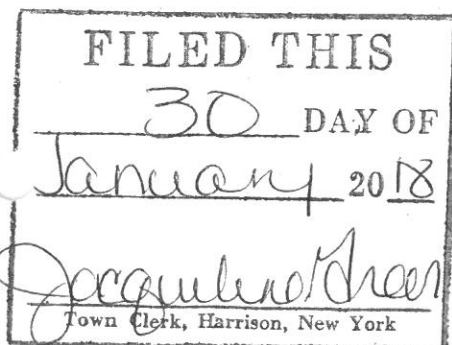 FILED THIS
30 DAY OF
January 2018
Jacqueline Greer
Town Clerk, Harrison, New York